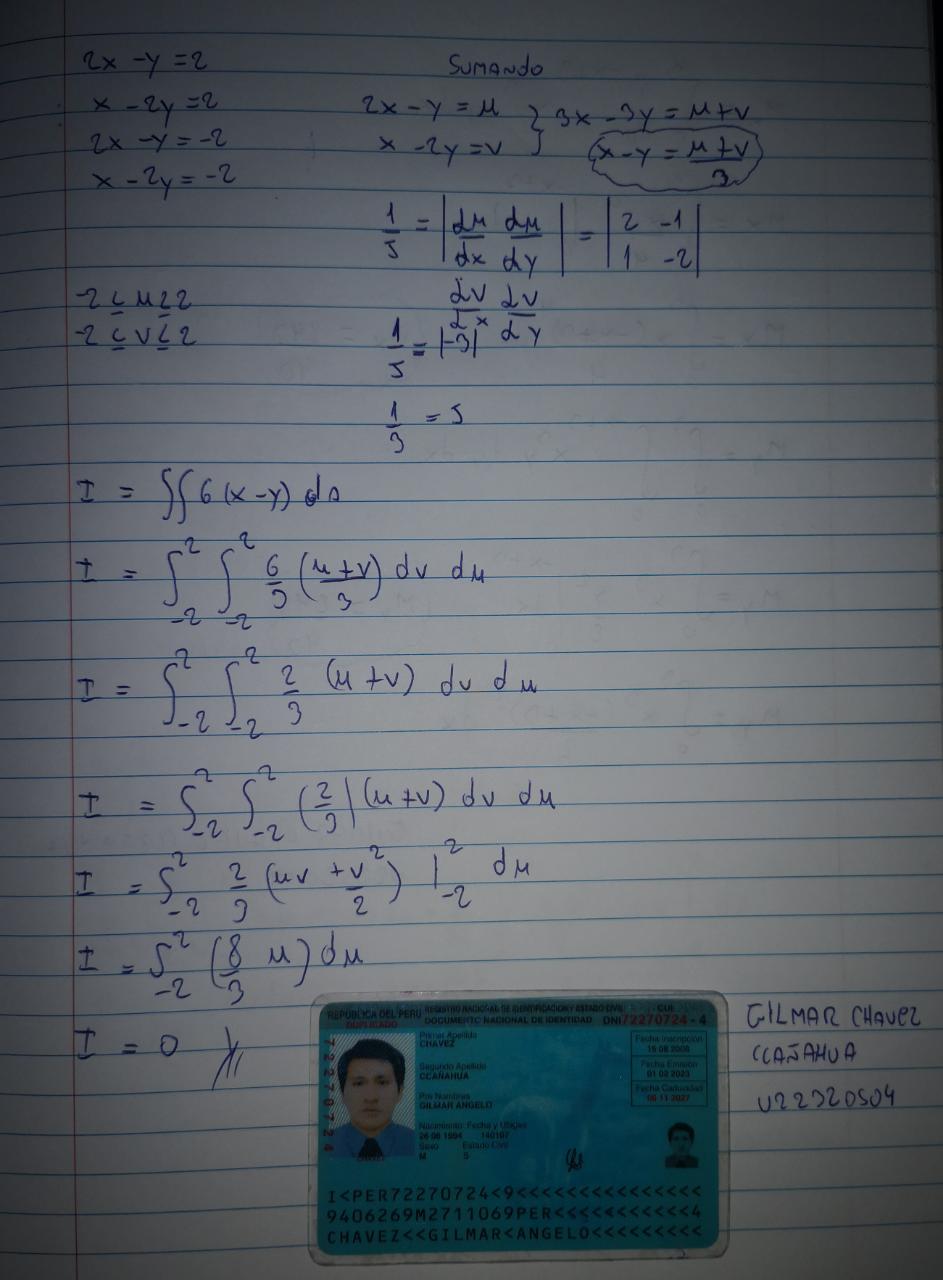 2x - y = 2
x - 2y = 2
2x - y = -2
x - 2y = -2
SUMANDO
2x - y = μ } 3x - 3y = μ+v
x - 2y = v   x - y = μ+v/3
1/J = | dμ/dx dμ/dy | = | 2 -1 |
dv/dx dv/dy   1 -2
-2 ≤ μ ≤ 2
-2 ≤ v ≤ 2
1/J = |-3|
1/3 = J
I = ∫∫ 6 (x-y) da
I = ∫_-2^2 ∫_-2^2 6/3 (μ+v/3) dv dμ
I = ∫_-2^2 ∫_-2^2 2/3 (μ+v) dv dμ
I = ∫_-2^2 ∫_-2^2 (2/3) (μ+v) dv dμ
I = ∫_-2^2 2/3 (μv + v^2/2) |_-2^2 dμ
I = ∫_-2^2 (8/3 μ) dμ
I = 0
REPUBLICA DEL PERU REGISTRO NACIONAL DE IDENTIFICACION Y ESTADO CIVIL CUI
DUPLICADO DOCUMENTO NACIONAL DE IDENTIDAD DNI 72270724 - 4
Primer Apellido
CHAVEZ
Segundo Apellido
CCAÑAHUA
Pre Nombres
GILMAR ANGELO
Nacimiento: Fecha y Ubigeo
26 06 1994 140107
Sexo Estado Civil
M S
Fecha Inscripción
Fecha Emisión
01 02 2023
Fecha Caducidad
06 11 2027
72270724
I<PER72270724<9<<<<<<<<<<<<<<<
9406269M2711069PER<<<<<<<<<<<4
CHAVEZ<<GILMAR<ANGELO<<<<<<<<<
GILMAR CHAVEZ
CCAÑAHUA
U22320504